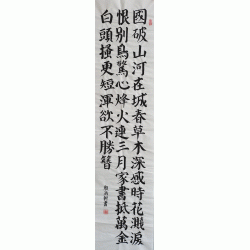 國破山河在城春草木深感時花濺淚
恨別鳥驚心烽火連三月家書抵萬金
白頭搔更短渾欲不勝簪